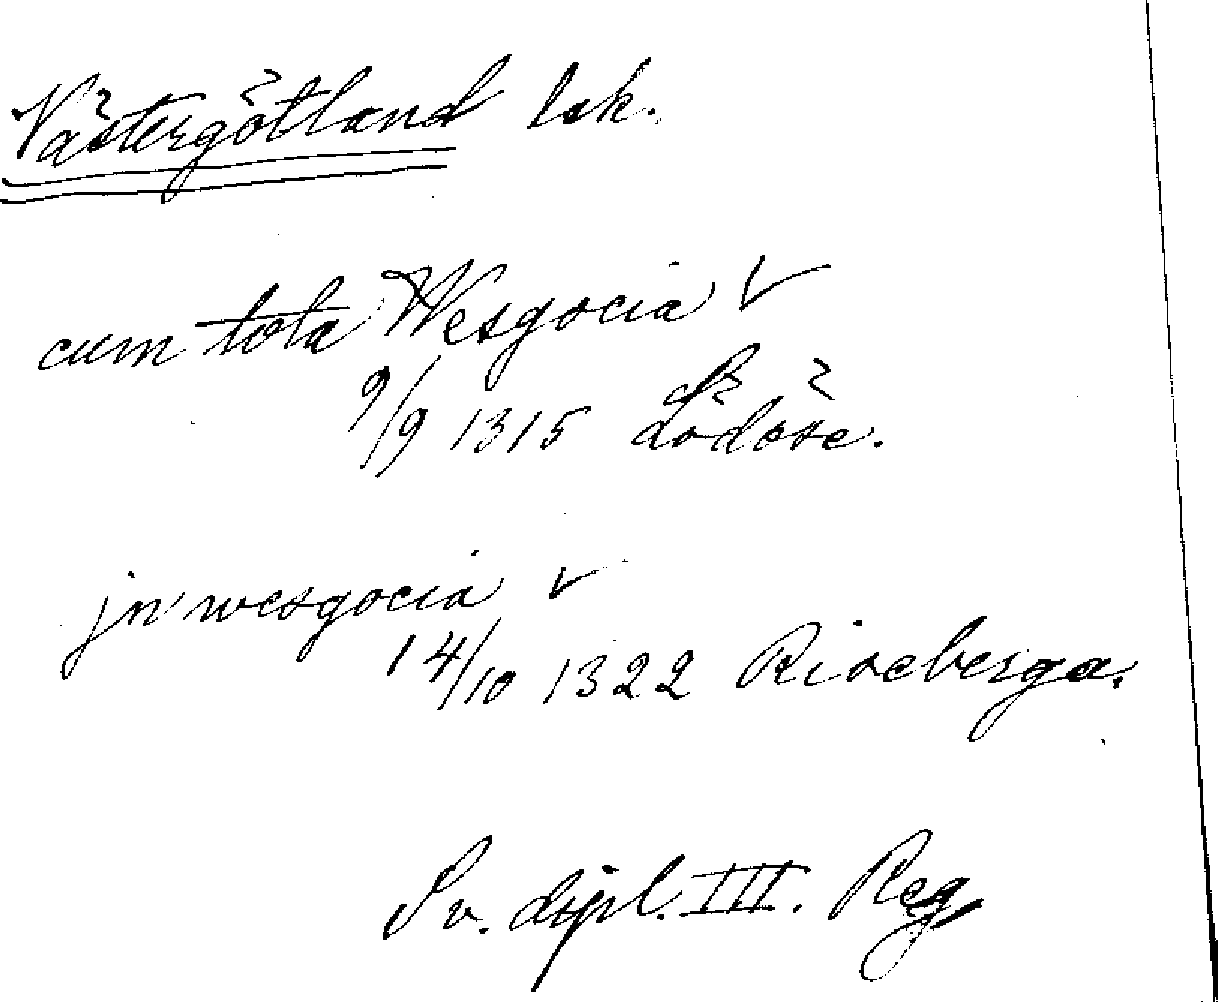 Västergötland lsk.
cum tota Wesgocia √
9/9 1315 Lödöse.
jn wesgocia √
14/10 1322 Riseberga.
Sv. dipl. III. Reg